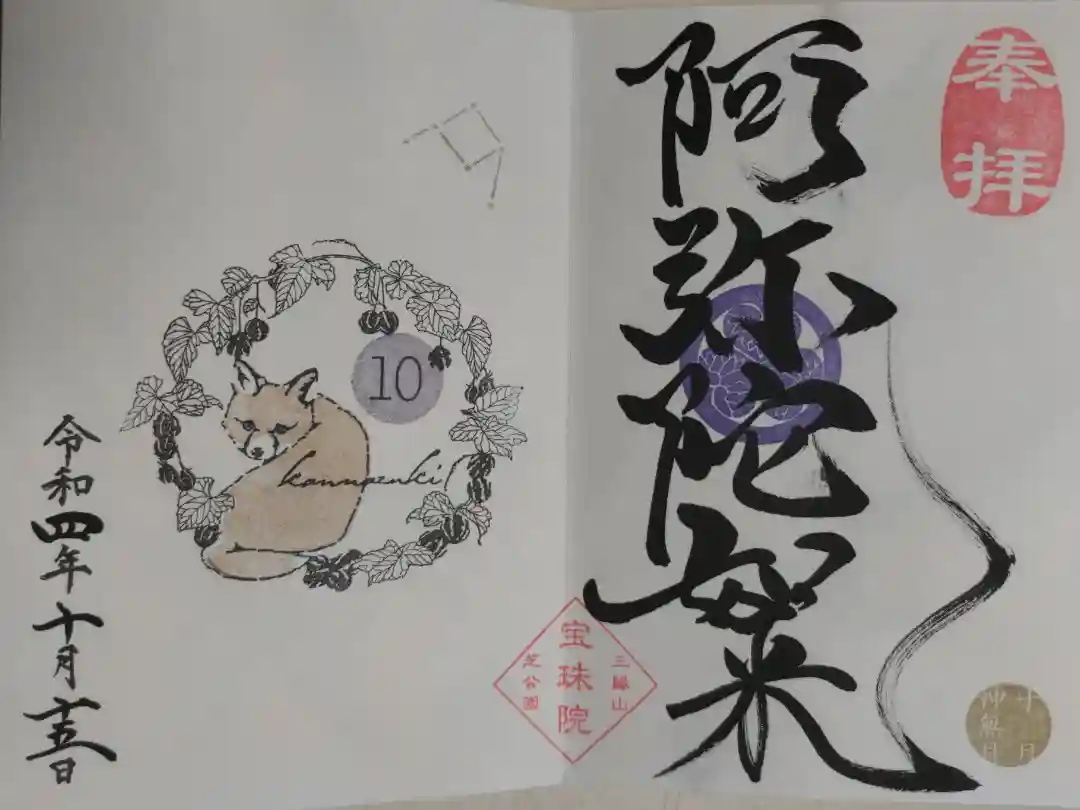 奉拝
阿弥陀如来
十月
神無月
三縁山
宝珠院
芝公園
10
kannazuki
令和四年十月十五日